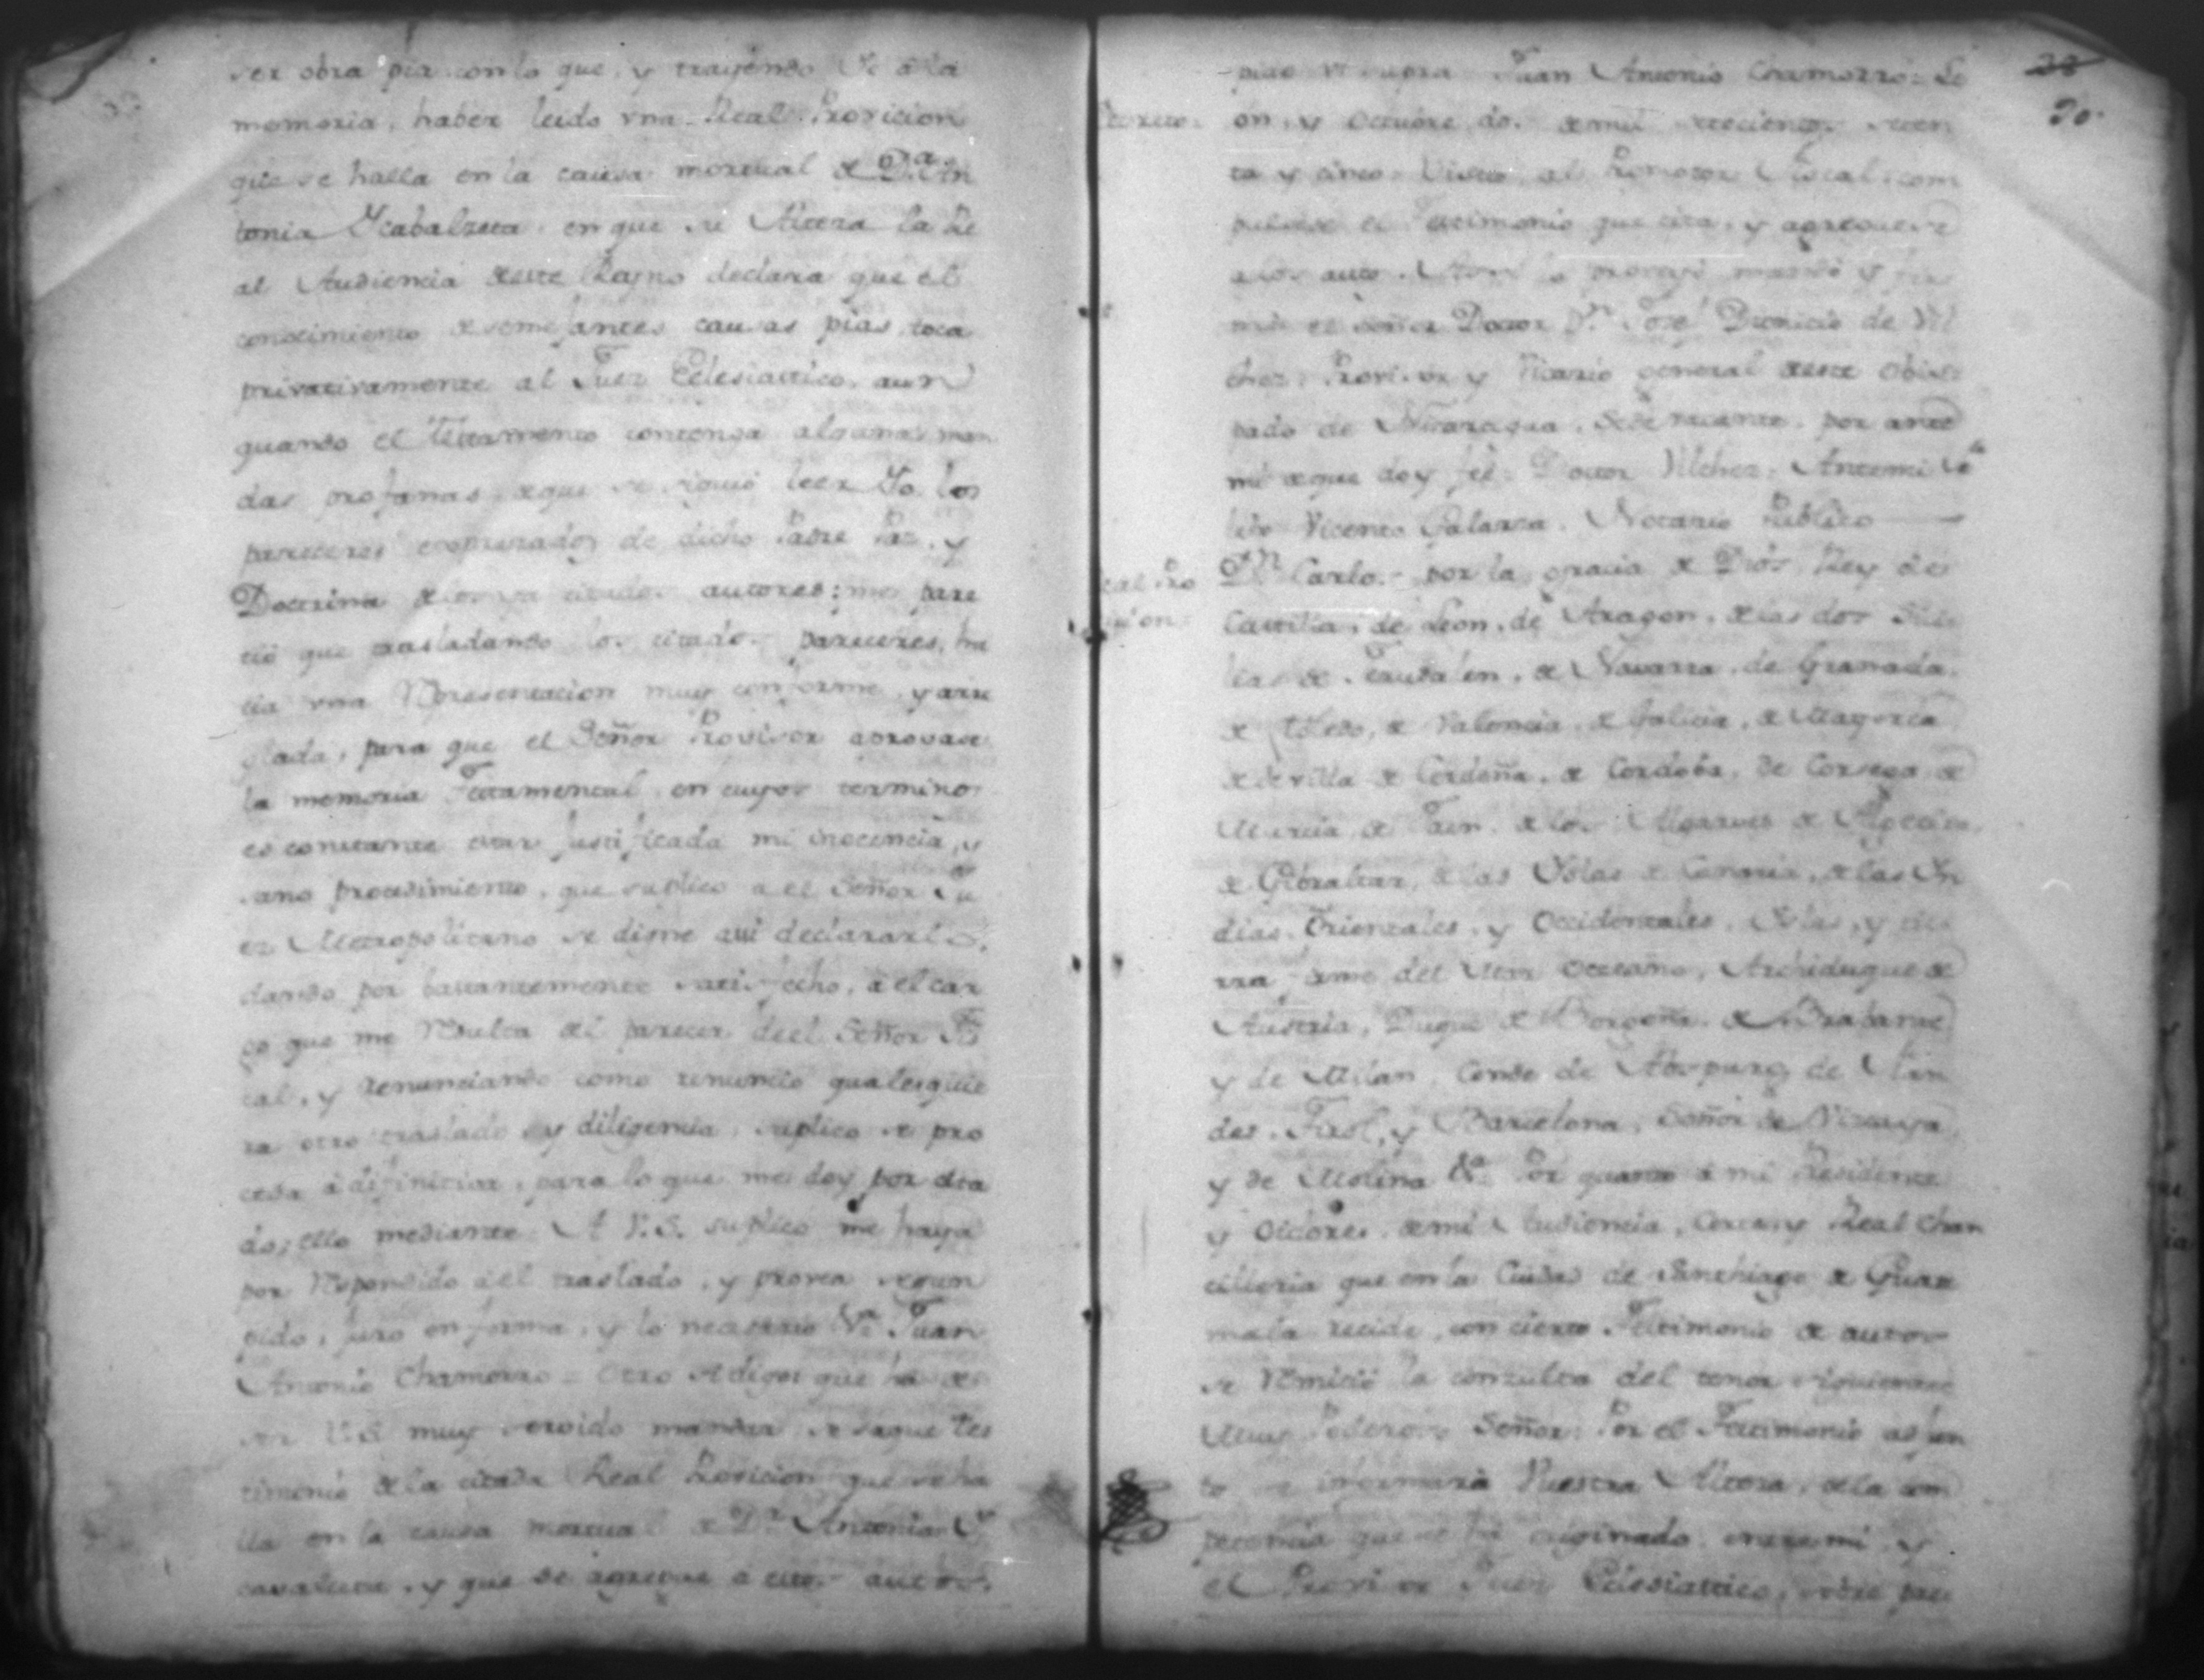 ser obra pia con lo que, y trayendo se a la
memoria, haber leido vna Real Provicion
que se halla en la causa mortual de D.ª An
tonia Ycabalzeta en que su Alteza la Re
al Audiencia de este Reyno declara que el
conocimiento de semejantes causas pias toca
privativamente al Juez Eclesiastico, aun
quando el Testamento contenga algunas man
das profanas, de que se siguió leer Yo los
pareceres de dicho Padre Paz, y
Doctrina de los ya citados autores; me pare
ció que trasladando los citados pareceres, ha
cia vna Representacion muy conforme, y arre
glada, para que el Señor Provisor aprovase
la memoria Testamental, en cuyos terminos
es constante estar justificada mi inocencia, y
sano procedimiento, que suplico a el Señor Ju
ez Metropolitano se digne assi declararlo,
dando por bastantemente satisfecho, a el car
go que me Resulta del parecer de el Señor Fis
cal, y renunciando como renuncio qualesquie
ra otro traslado, y diligencia, suplico se pro
ceda a difinitiva, para lo que me doy por cita
do; ello mediante A V.S. suplico me haya
por Respondido a el traslado, y provea segun
pido, juro en forma, y lo necesario V.ª Juan
Antonio Chamorro = Otro si digo: que ha de
ser V.S. muy servido mandar se saque tes
timonio de la citada Real Provicion que se ha
lla en la causa mortual de D.ª Antonia Y
cavalzeta, y que se agregue a estos autos.
38
30
pido vt supra Juan Antonio Chamorro = Le
on, y Octubre dos de mil setecientos seten
ta y cinco. Visto, al Promotor Fiscal, com
pulsese el Testimonio que cita, y agreguese
a los autos. Assi lo proveyó mandó y fir
mó el Señor Doctor D.n José Dionicio de Vil
chez, Provisor y Vicario general de este Obis
pado de Nicaragua, Sede vacante, por ante
mi de que doy fe = Doctor Vilchez. Ante mi
Vicente Galarza, Notario Publico
D.n Carlos por la gracia de Dios, Rey de
Castilla, de Leon, de Aragon, de las dos Sici
lias de Jerusalen, de Navarra, de Granada,
de Toledo, de Valencia, de Galicia, de Mayorca
de Sevilla de Cerdeña, de Cordoba, de Corsega de
Murcia, de Jaen, de los Algarves de Algecira,
de Gibraltar, de las Yslas de Canaria, de las Yn
dias Orientales, y Occidentales, Yslas, y tie
rra firme del Mar Occeano, Archiduque de
Austria, Duque de Borgoña, de Brabante
y de Milan, Conde de Abspurg, de Flan
des, Tirol, y Barcelona, Señor de Vizcaya,
y de Molina &.ª Por quanto a mi Presidente
y Oidores, de mi Audiencia, Corte, y Real Chan
cilleria que en la Ciudad de Santhiago de Guate
mala recide, con cierto Testimonio de autos
se Remitió la consulta del tenor siguiente
Muy Poderoso Señor: Por el Testimonio adjun
to se informará Vuestra Alteza, de la com
petencia que se ha originado, entre mi, y
el Provisor Juez Eclesiastico, sobre pre